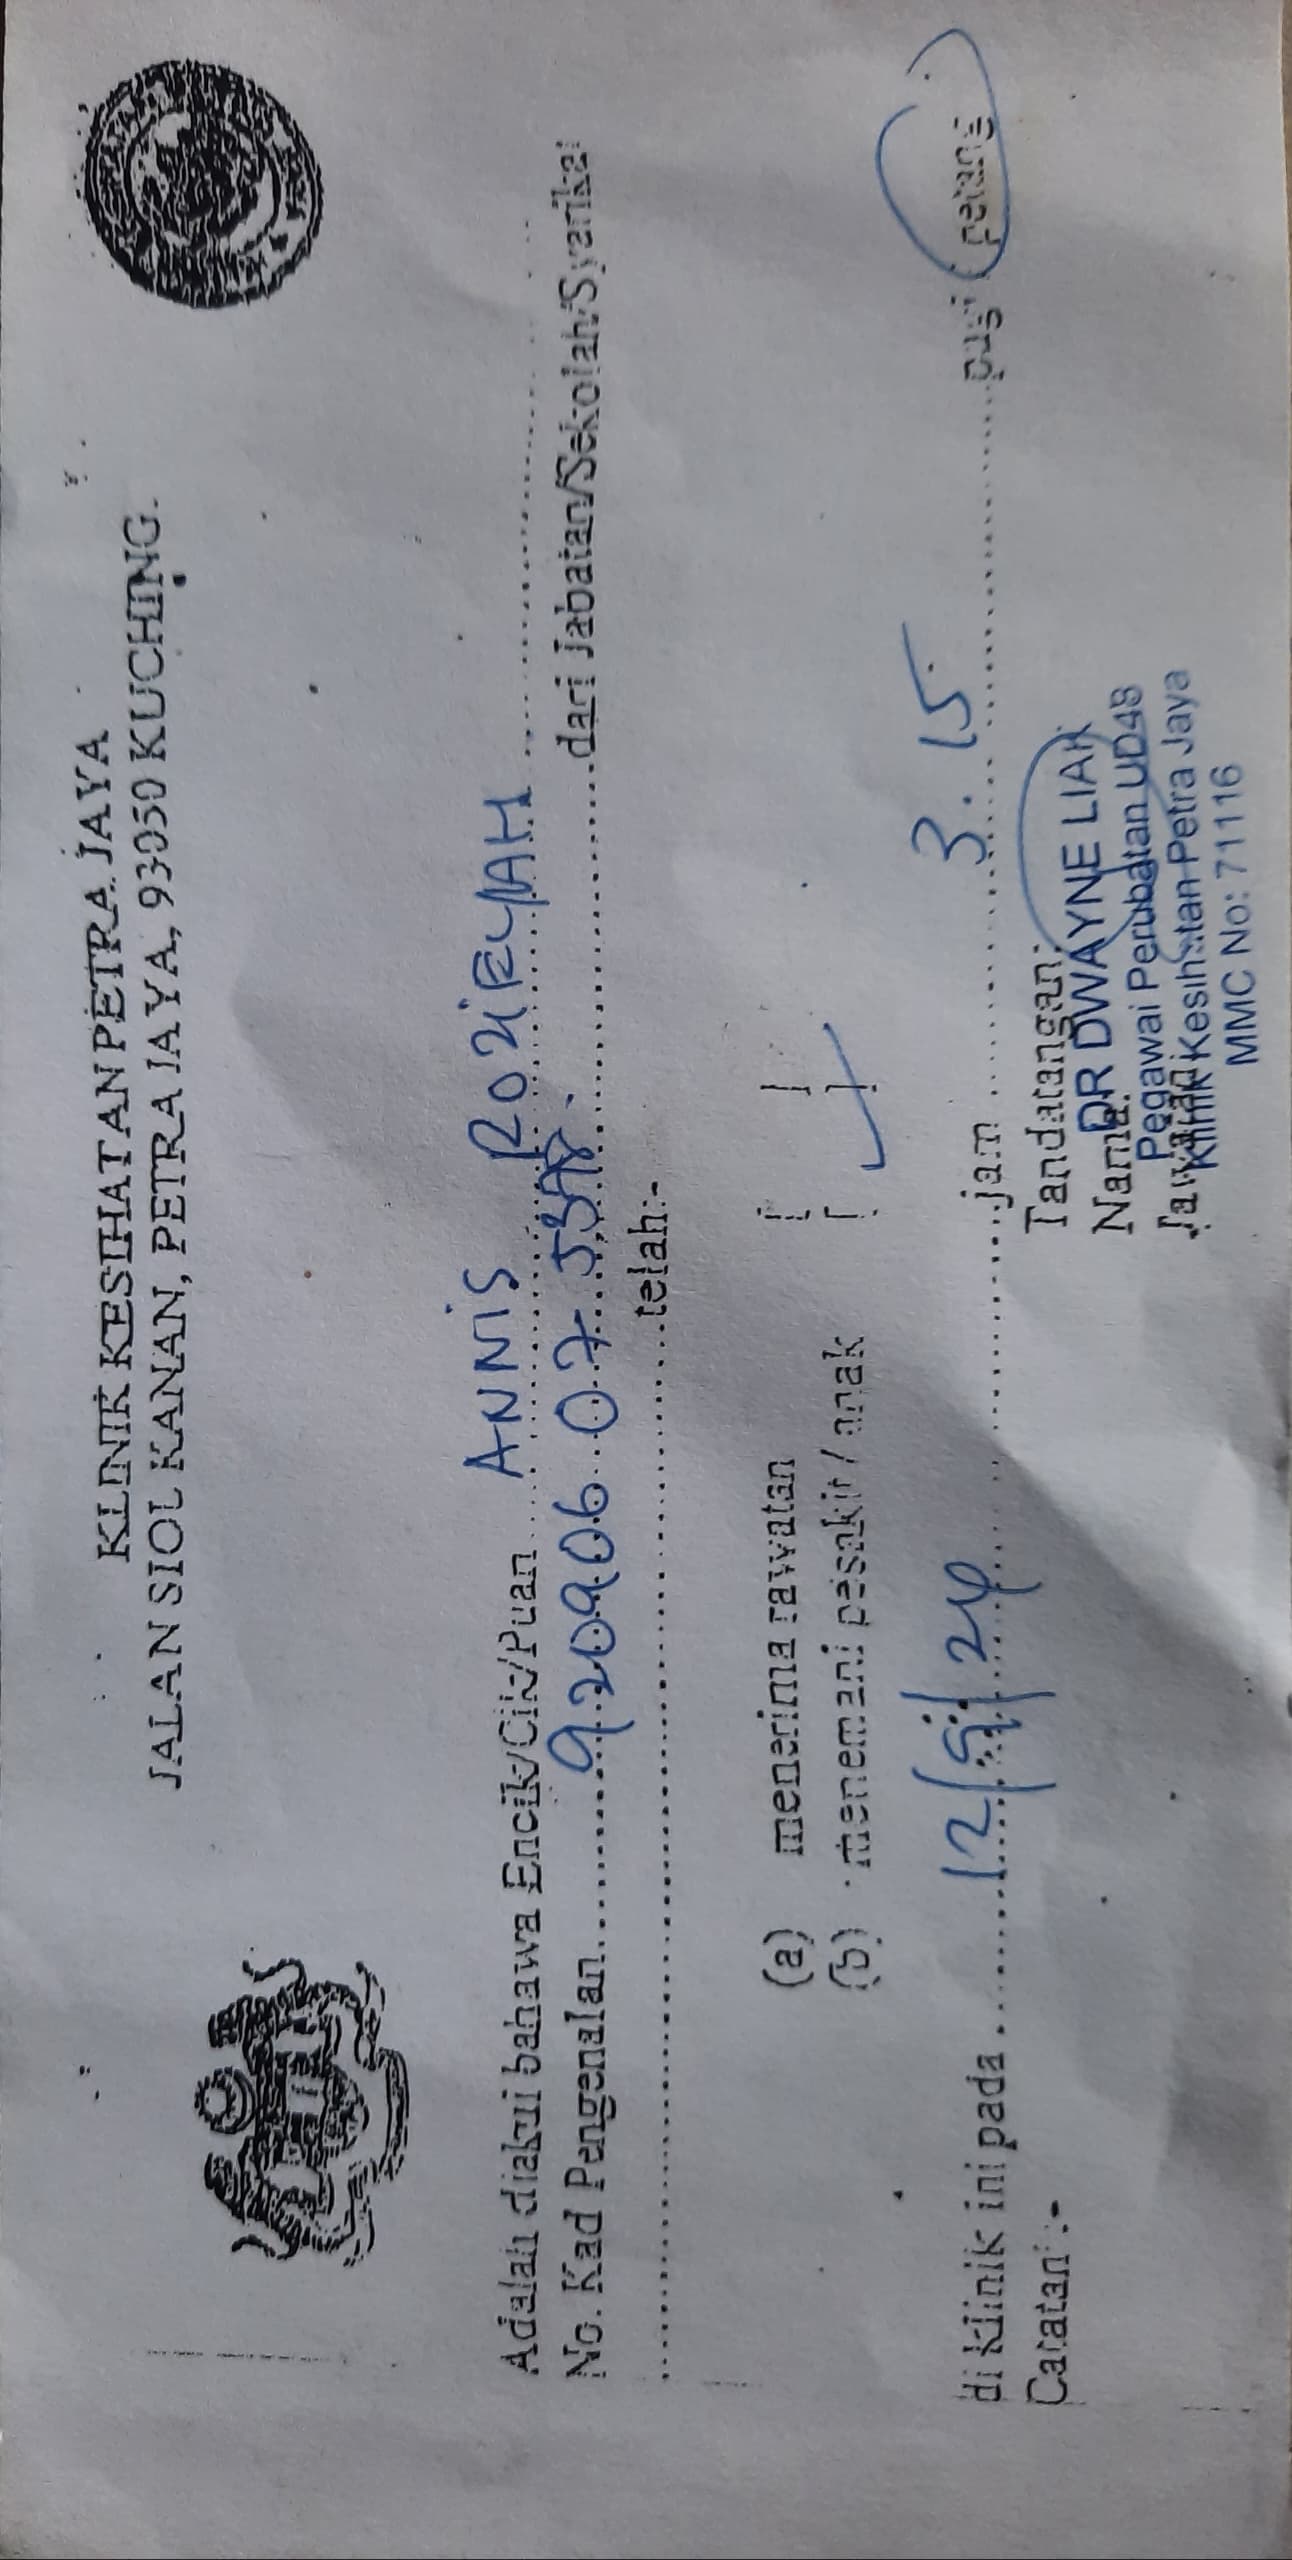 KLINIK KESIHATAN PETRA JAYA
JALAN SIOL KANAN, PETRA JAYA, 93050 KUCHING.
Adalah diakui bahawa Encik/Cik/Puan ANNIS ROZIEYAH
No. Kad Pengenalan 920906 07 dari Jabatan/Sekolah/Syarikat
telah:-
(a) menerima rawatan
(b) menemani pesakit / anak
di klinik ini pada 12/ /24 jam 3.15 pagi / petang
Catatan:- Tandatangan:
Nama: DR DWAYNE LIAK
Pegawai Perubatan UD48
Jawatan: Klinik Kesihatan Petra Jaya
MMC No: 71116